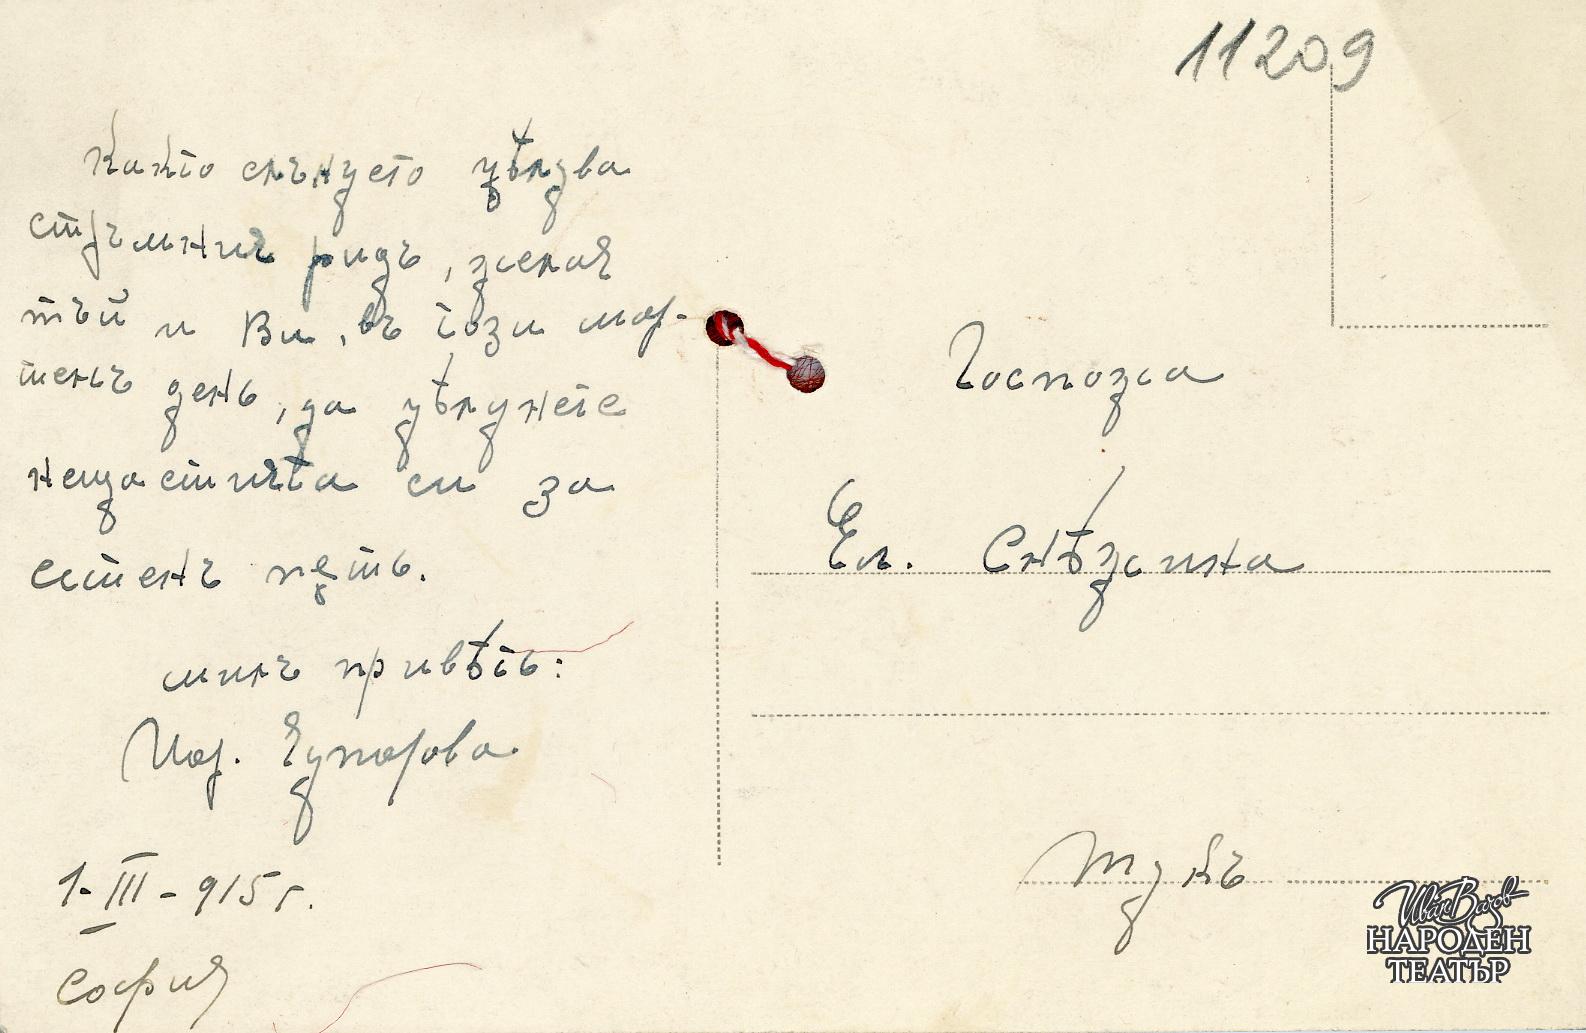 11209
Както слънцето цѣлува
стръмния ридъ, желая
тъй и Ви, въ този мар-
тенъ день, да цѣлунете
нещастията си за
сетенъ пѫть.
милъ привѣтъ:
Мар.
1-III-915 г.
София
Госпожа
Ел. Снѣжина
Тукъ
Иван Вазов
НАРОДЕН
ТЕАТЪР